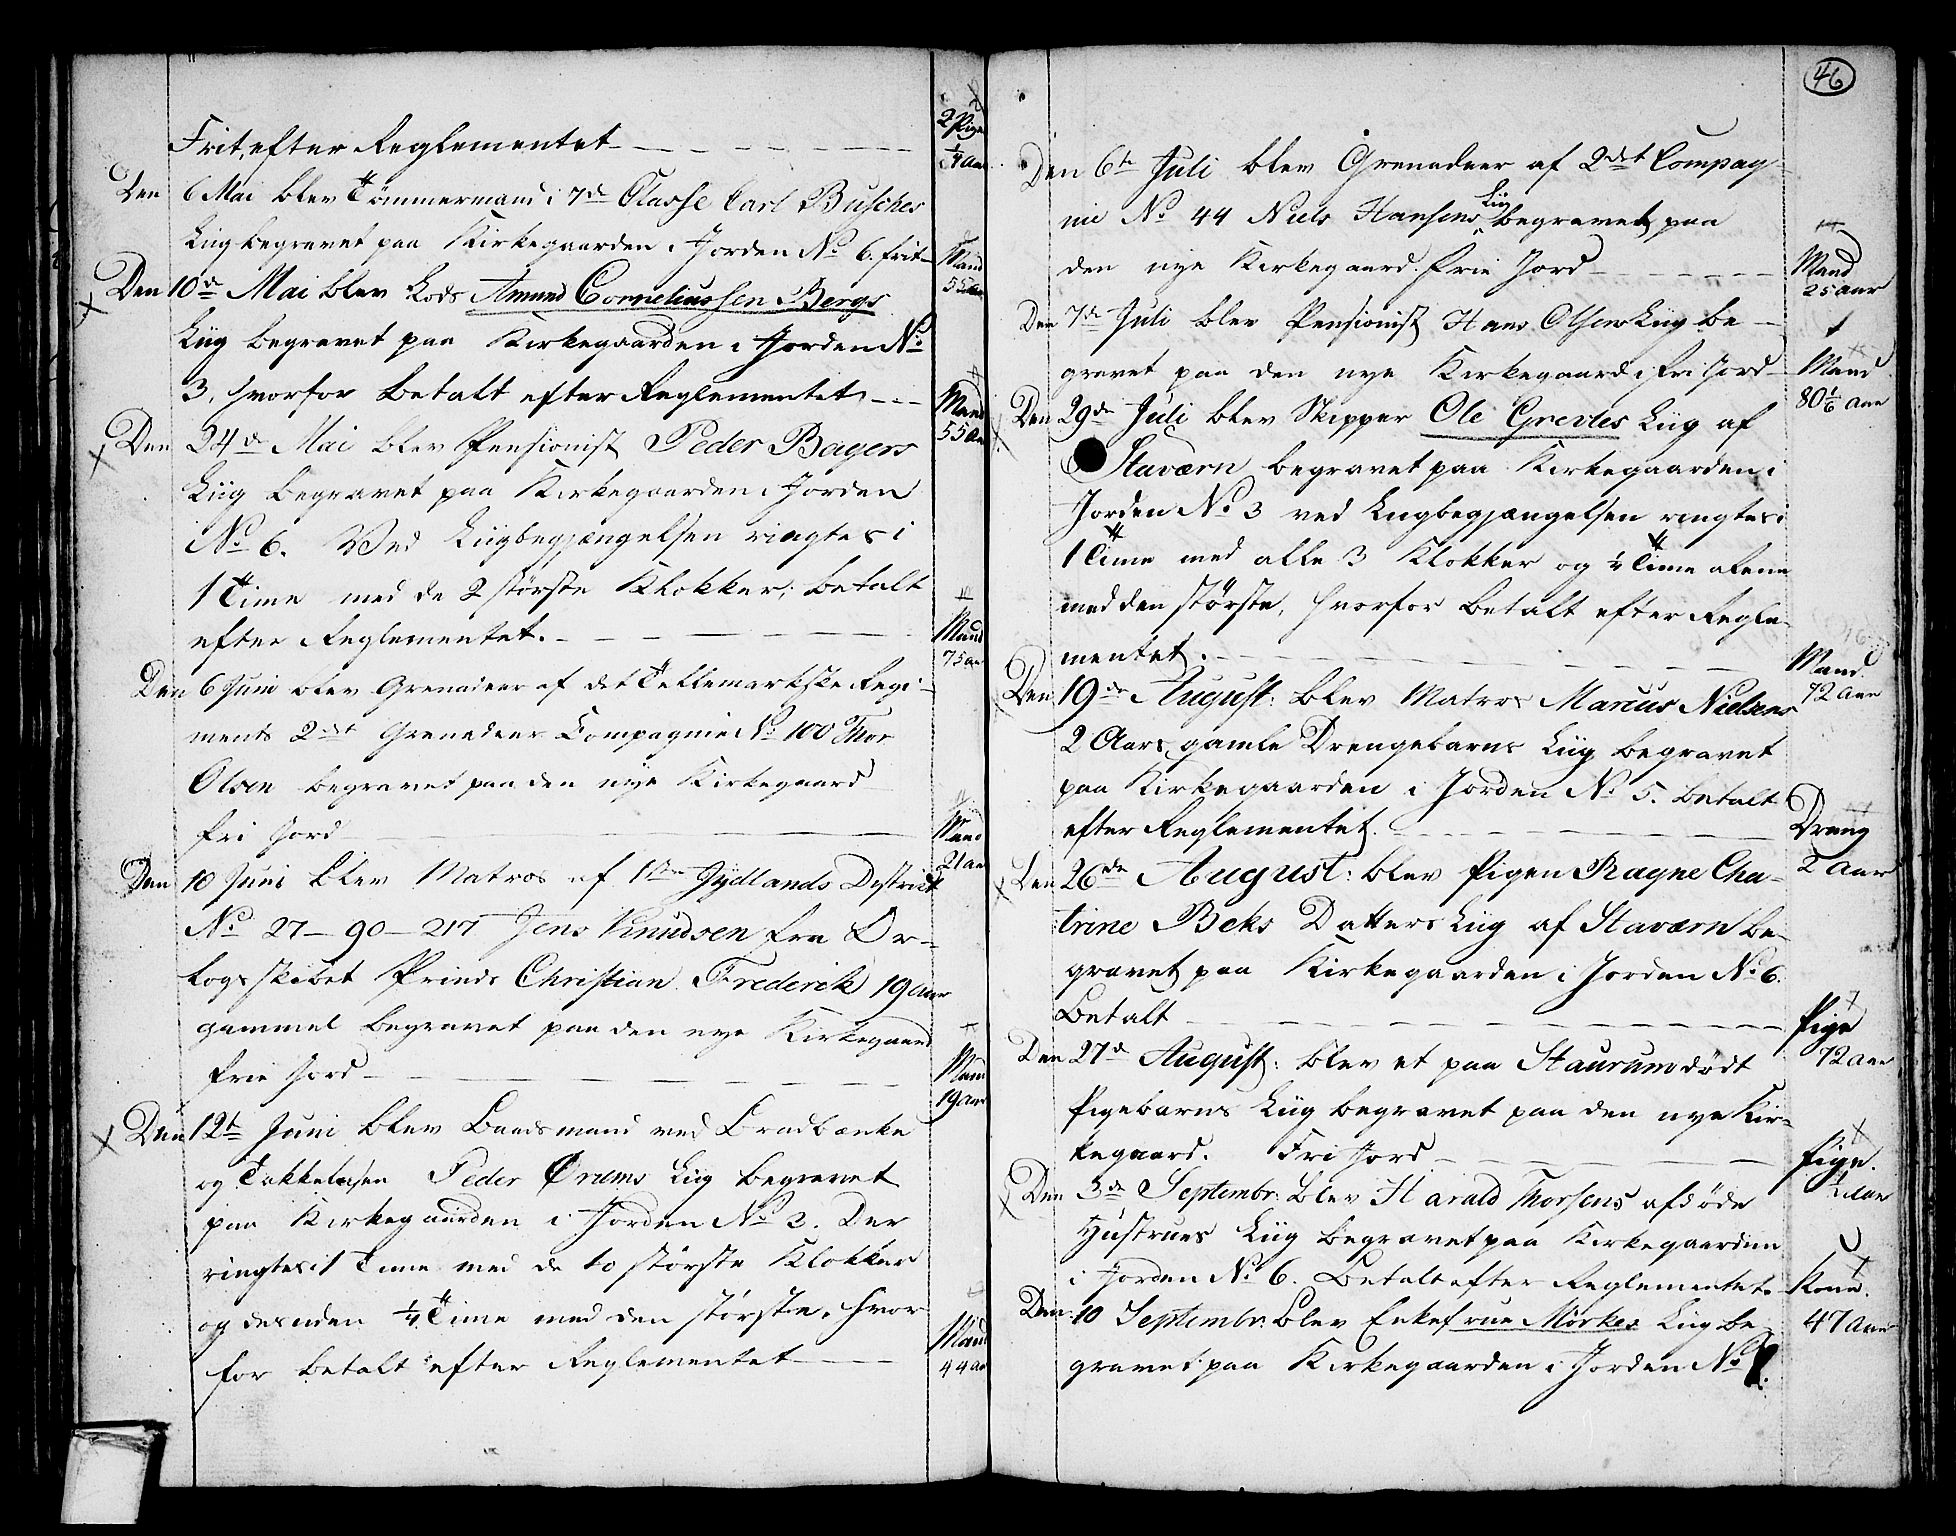 Frit, efter Reglementet
2 Pige
1/4 Aar
Den 6 Mai blev Tömmermand i 7de Classe Carl Busches
Liig begravet paa Kirkegaarden i Jorden No 6. frit
Mand
55 Aar
Den 10de Mai blev Lods Amund Corneliussen Bergs
Liig begravet paa Kirkegaarden i Jorden No
3, hvorfor Betalt efter Reglementet
Mand
55 Aar
Den 24de Mai blev Pensionist Peder Bagers
Liig begravet paa Kirkegaarden i Jorden
No 6. Ved Liigbegjængelsen ringtes i
1 Time med de 2 störste Klokker, betalt
efter Reglementet.
Mand
75 Aar
Den 6 Juni blev Grenadeer af det Tellemarkske Regi-
ments 2det Grenadeer Compagnie No 100 Thor
Olsen begravet paa den nye Kirkegaard
fri Jord
Mand
21 Aar
Den 10 Juni blev Matros af 1ste Jydlands District
No 27-90-217 Jens Knudsen fra Or-
logsskibet Prinds Christian Frederik 19 Aar
gammel begravet paa den nye Kirkegaard
frie Jord
Mand
19 Aar
Den 12te Juni blev Baadsmand ved Bradbænke
og Takkeladsen Peder Örums Liig begravet
paa Kirkegaarden i Jorden No 2. Der
ringtes i 1 Time med de to störste Klokker
og desuden 1/4 Time med den störste, hvor-
for betalt efter Reglementet
Mand
44 Aar
46
Den 6te Juli blev Grenadeer af 2det Compag-
nie No 44 Niels Hansens Liig begravet paa
den nye Kirkegaard. frie Jord
Mand
25 Aar
Den 7de Juli blev Pensionist Hans Olsens Liig be-
gravet paa den nye Kirkegaard i fri Jord
Mand
80 1/6 Aar
Den 29de Juli blev Skipper Ole Grevles Liig af
Staværn begravet paa Kirkegaarden i
Jorden No 3 ved Liigbegjængelsen ringtes i
1 Time med alle 3 Klokker og 1/4 Time alene
med den störste, hvorfor betalt efter Regle-
mentet.
Mand
72 Aar
Den 19de August: blev Matros Marcus Nielsens
2 Aars gamle Drengebarns Liig begravet
paa Kirkegaarden i Jorden No 5. betalt
efter Reglementet.
Dreng
2 Aar
Den 26de August: blev Pigen Ragne Cha-
trine Beks Datters Liig af Staværn be-
gravet paa Kirkegaarden i Jorden No 6.
Betalt
Pige
72 Aar
Den 27de August: blev et paa Staurum dödt
Pigebarns Liig begravet paa den nye Kir-
kegaard. Fri Jord
Pige.
Den 3de Septembr: blev Harald Thorsens afdöde
Hustrues Liig begravet paa Kirkegaarden
i Jorden No 6. Betalt efter Reglementet.
Kone.
47 Aar
Den 10 Septembr: blev Enkefrue Mörkes Liig be-
gravet paa Kirkegaarden i Jorden No